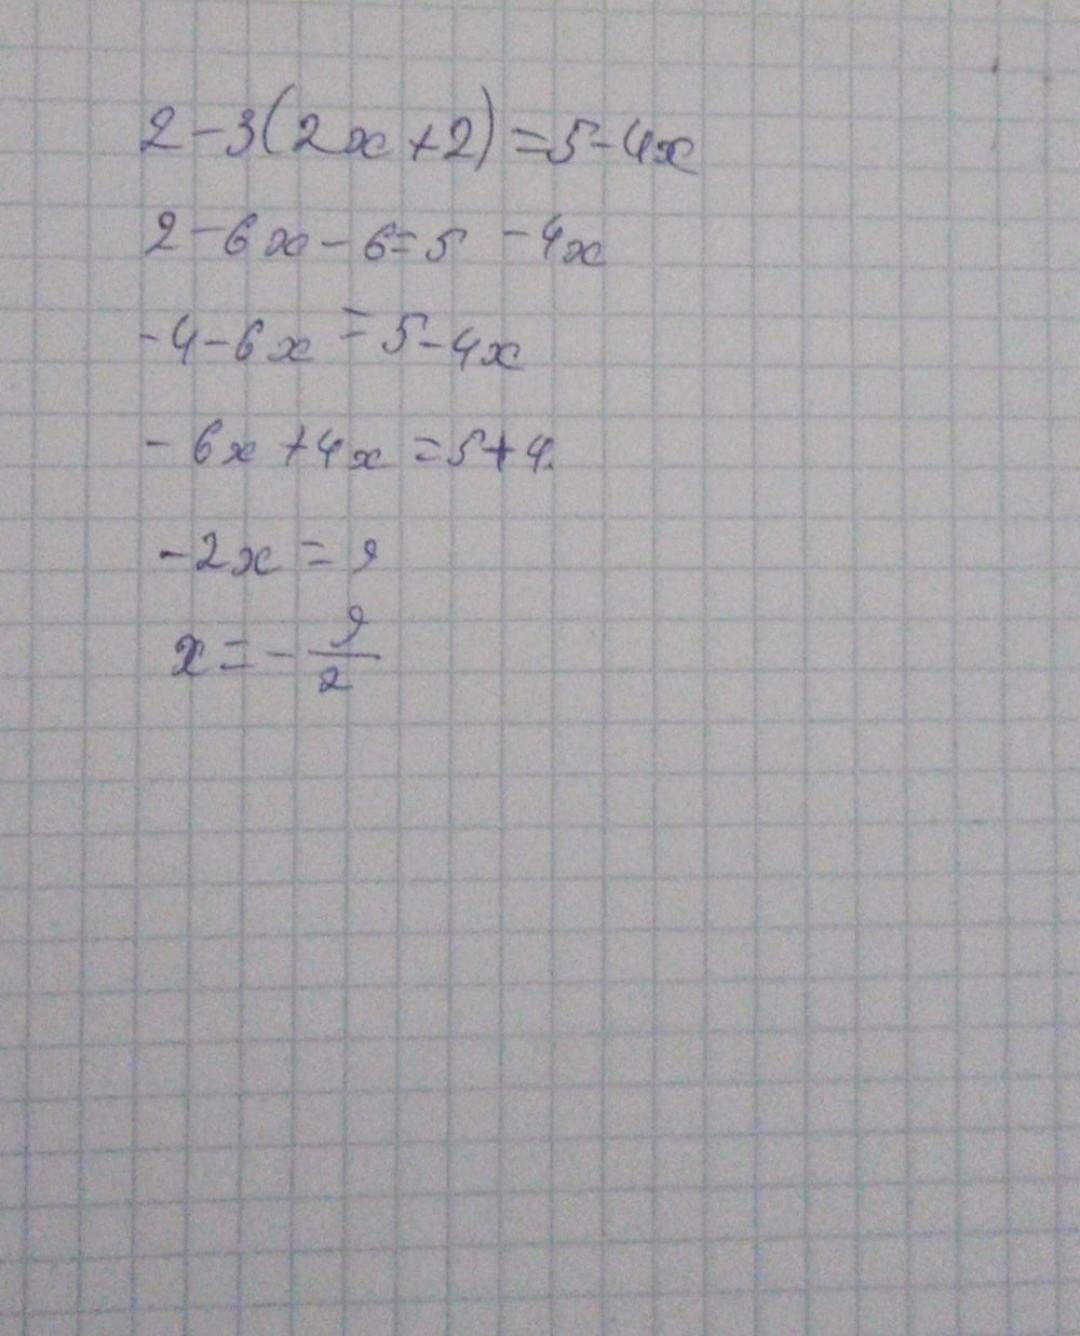 2-3(2x+2)=5-4x
2-6x-6=5-4x
-4-6x=5-4x
-6x+4x=5+4.
-2x=9
x=-9/2